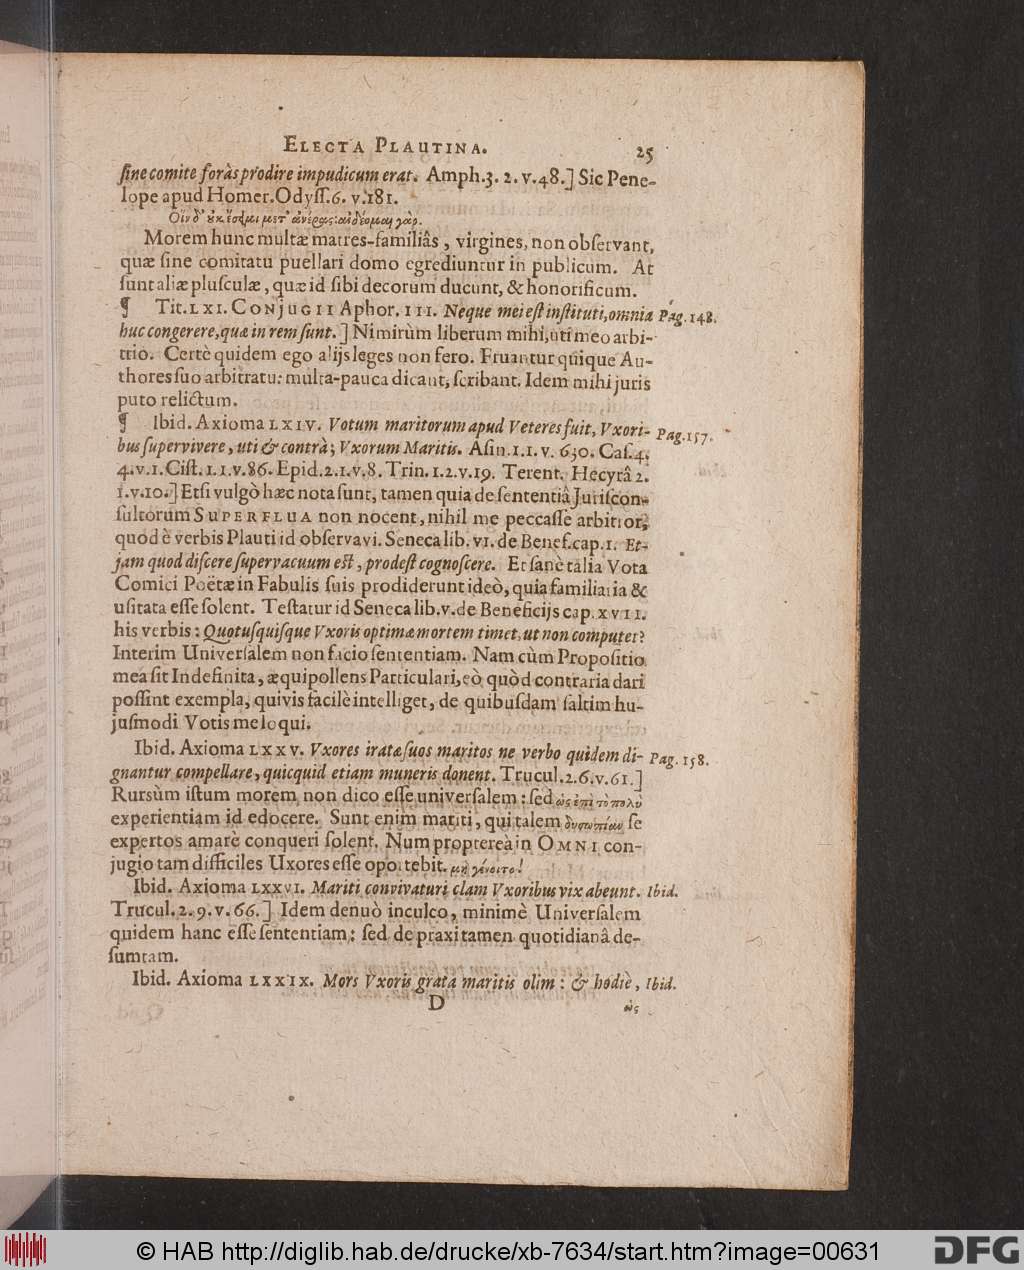 ELECTA PLAUTINA. 25
ſine comite foràs prodire impudicum erat. Amph.3. 2. v.48.] Sic Pene-
lope apud Homer. Odyſſ.6. v.181.
μετ' ἀνέρας: αἰδέομαι γάρ.
Morem hunc multæ matres-familiâs, virgines, non obſervant,
quæ ſine comitatu puellari domo egrediuntur in publicum. At
ſunt aliæ pluſculæ, quæ id ſibi decorum ducunt, & honorificum.
¶ Tit. LXI. CONJUGII Aphor. III. Neque mei eſt inſtituti, omnia Pag. 148.
huc congerere, quæ in rem ſunt.] Nimirùm liberum mihi, uti meo arbi-
trio. Certè quidem ego alijs leges non fero. Fruantur quique Au-
thores ſuo arbitratu: multa-pauca dicant, ſcribant. Idem mihi juris
puto relictum.
¶ Ibid. Axioma LXIV. Votum maritorum apud Veteres fuit, Vxori- Pag. 157.
bus ſupervivere, uti & contrà, Vxorum Maritis. Aſin. 1.1. v. 630. Caſ. 4.
4. v.1. Ciſt. 1.1. v.86. Epid. 2.1. v.8. Trin. 1.2. v.19. Terent. Hecyrâ 2.
1. v.10.] Etſi vulgò hæc nota ſunt, tamen quia de ſententiâ Juriſcon-
ſultorum SUPERFLUA non nocent, nihil me peccaſſe arbitror,
quòd è verbis Plauti id obſervavi. Seneca lib. VI. de Benef. cap. 1. Et-
jam quod diſcere ſupervacuum eſt, prodeſt cognoſcere. Et ſanè talia Vota
Comici Poëtæ in Fabulis ſuis prodiderunt ideò, quia familiaria &
uſitata eſſe ſolent. Teſtatur id Seneca lib. V. de Beneficijs cap. XVII.
his verbis: Quotuſquiſque Vxoris optimæ mortem timet, ut non computet?
Interim Univerſalem non facio ſententiam. Nam cùm Propoſitio
mea ſit Indefinita, æquipollens Particulari, eò quòd contraria dari
poſſint exempla, quivis facilè intelliget, de quibuſdam ſaltim hu-
juſmodi Votis me loqui.
Ibid. Axioma LXXV. Vxores iratæ ſuos maritos ne verbo quidem di- Pag. 158.
gnantur compellare, quicquid etiam muneris donent. Trucul. 2.6. v.61.]
Rursùm iſtum morem non dico eſſe univerſalem: ſed ὡς ἐπὶ τὸ πολὺ
experientiam id edocere. Sunt enim mariti, qui talem ſe
expertos amarè conqueri ſolent. Num propterea in OMNI con-
jugio tam difficiles Uxores eſſe oportebit. μὴ γένοιτο!
Ibid. Axioma LXXVI. Mariti convivaturi clam Vxoribus vix abeunt. Ibid.
Trucul. 2. 9. v. 66.] Idem denuò inculco, minimè Univerſalem
quidem hanc eſſe ſententiam; ſed de praxi tamen quotidianâ de-
ſumtam.
Ibid. Axioma LXXIX. Mors Vxoris grata maritis olim: & hodiè, Ibid.
D ὡς
© HAB http://diglib.hab.de/drucke/xb-7634/start.htm?image=00631 DFG